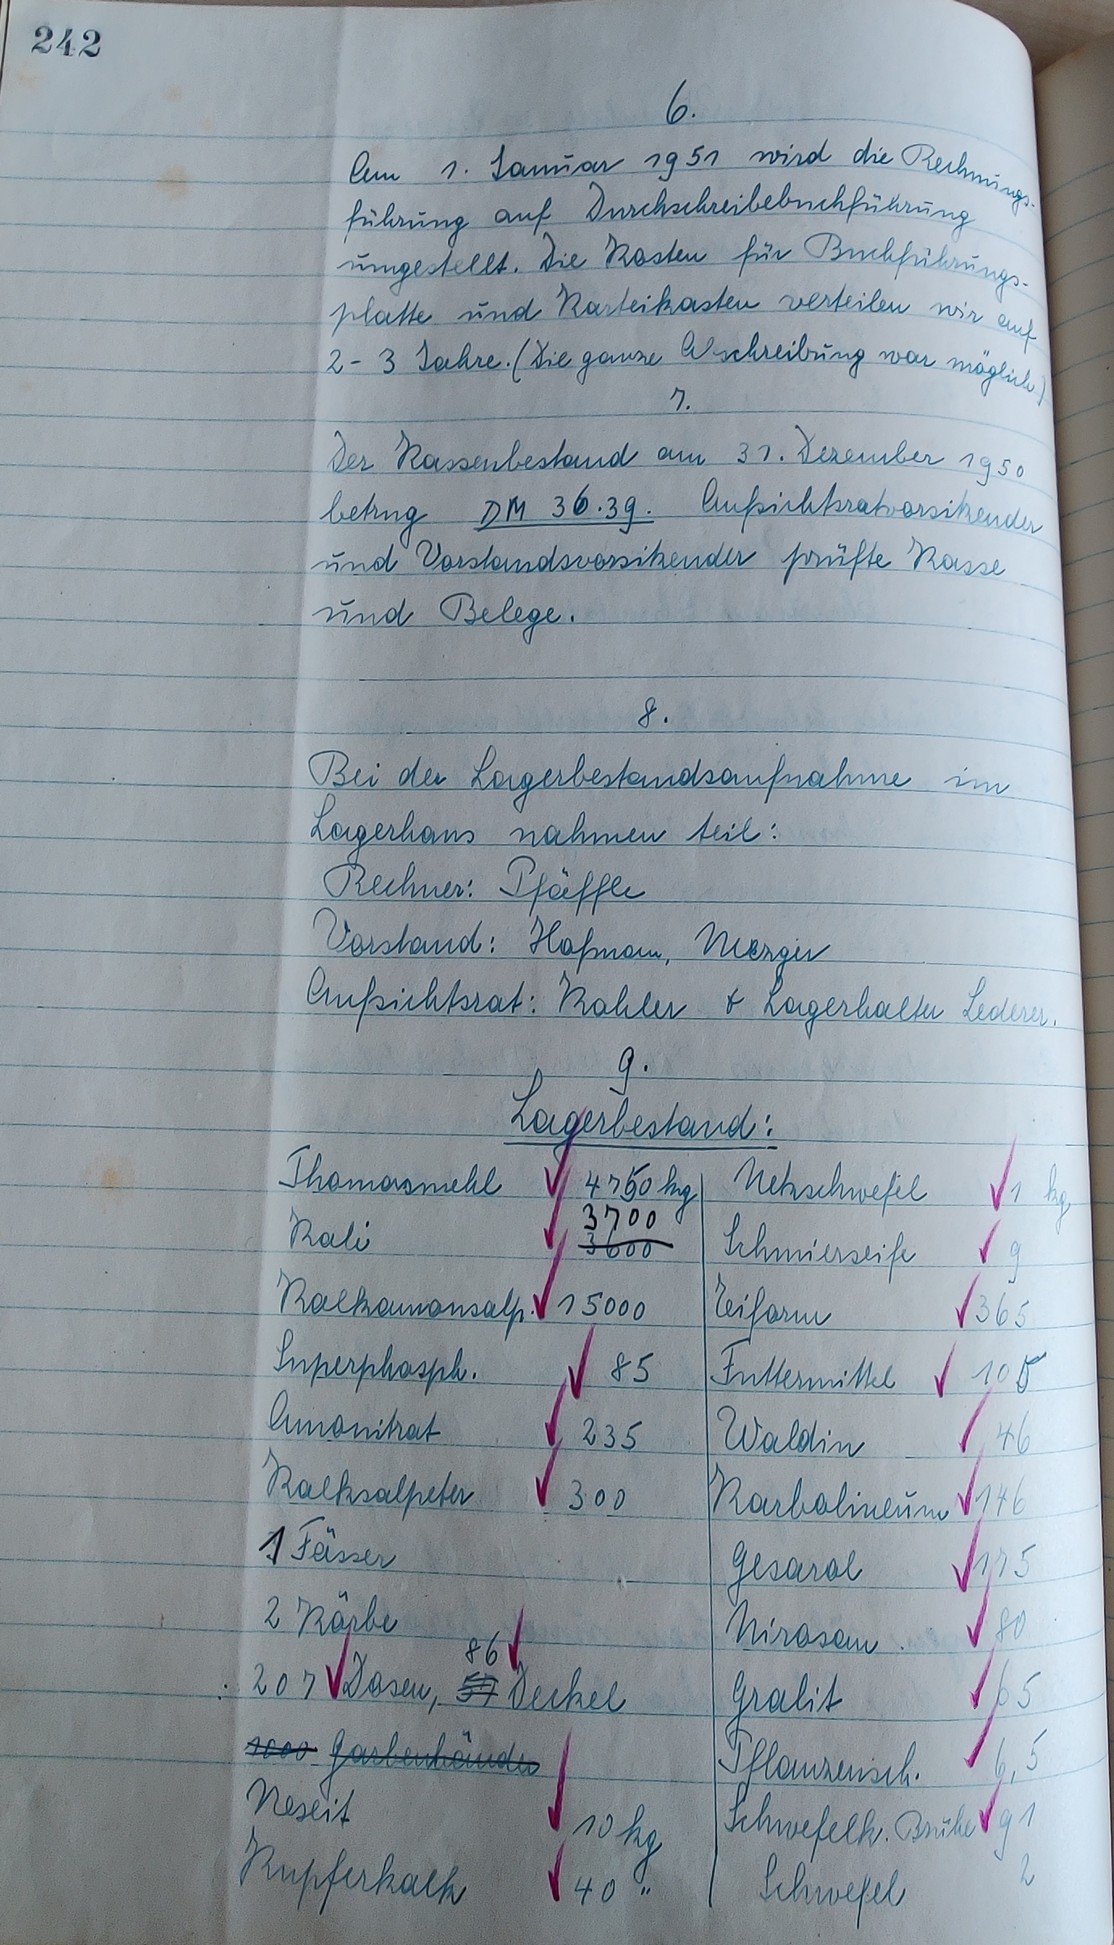 242
6.
Am 1. Januar 1951 wird die Rechnungs-
führung auf Durchschreibebuchführung
umgestellt. Die Kosten für Buchführungs-
platte und Karteikasten verteilen wir auf
2-3 Jahre. (Die ganze Abschreibung war möglich)
7.
Der Kassenbestand am 31. Dezember 1950
betrug DM 36.39. Aufsichtsratvorsitzender
und Vorstandsvorsitzender prüfte Kasse
und Belege.
8.
Bei der Lagerbestandsaufnahme im
Lagerhaus nahmen teil:
Rechner: Pfäffle
Vorstand: Hofmann, Mezger
Aufsichtsrat: Kohler & Lagerhalter Lederer.
9.
Lagerbestand:
Thomasmehl 4750 kg
Kali 3700 3600
Kalkamonsalp. 15000
Superphosph. 85
Amonitrat 235
Kalksalpeter 300
1 Fässer
2 Körbe
86
207 Dosen, Deckel
1000 Garbenbänder
Neseit 10 kg
Kupferkalk 40 "
Netzschwefel 1 kg
Schmierseife 9
365
Futtermittel 105
Waldin 46
Karbolineum 146
Gesarol 175
Nirosan 80
Gralit 65
Pflanzensch. 6,5
Schwefelk. Brühe 91
Schwefel 2